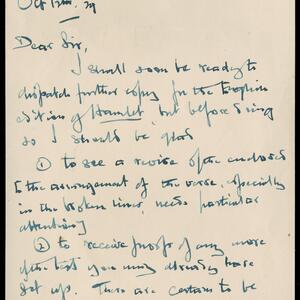 Oct 12th. 29
Dear Sir,
I shall soon be ready to
dispatch further copy for the English
edition of Hamlet, but before doing
so I should be glad
① to see a revise of the enclosed
[the arrangement of the verse, especially
in the broken lines, needs particular
attention]
② to receive proofs of any more
of the text you may already have
set up. There are certain to be